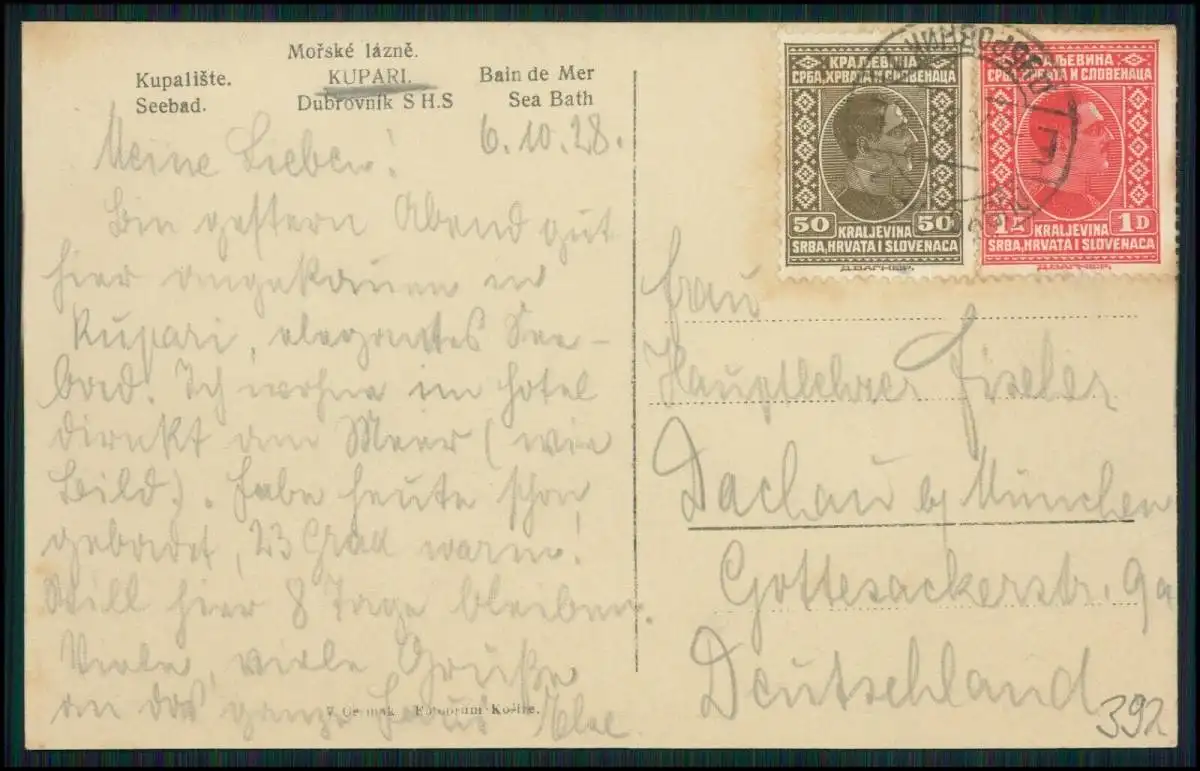 Mořské lázně.
Kupalište. KUPARI. Bain de Mer
Seebad. Dubrovnik S H.S Sea Bath
6. 10. 28.
Meine Lieben!
Bin gestern Abend gut
hier angekommen in
Kupari, elegantes See-
bad. Ich wohne im Hotel
direkt am Meer (wie
Bild). Habe heute schon
gebadet, 23 Grad warm!
Will hier 8 Tage bleiben.
Viele, viele Grüße
an das ganze Haus
Fotodruk Košíře.
КРАЉЕВИНА
СРБА, ХРВАТА И СЛОВЕНАЦА
50 50
KRALJEVINA
SRBA, HRVATA I SLOVENACA
Д. ВАГНЕР.
КРАЉЕВИНА
СРБА, ХРВАТА И СЛОВЕНАЦА
1D
KRALJEVINA
SRBA, HRVATA I SLOVENACA
Д. ВАГНЕР.
Frau
Hauptlehrer
Dachau b/ München
Gottesackerstr. 9a
Deutschland
392